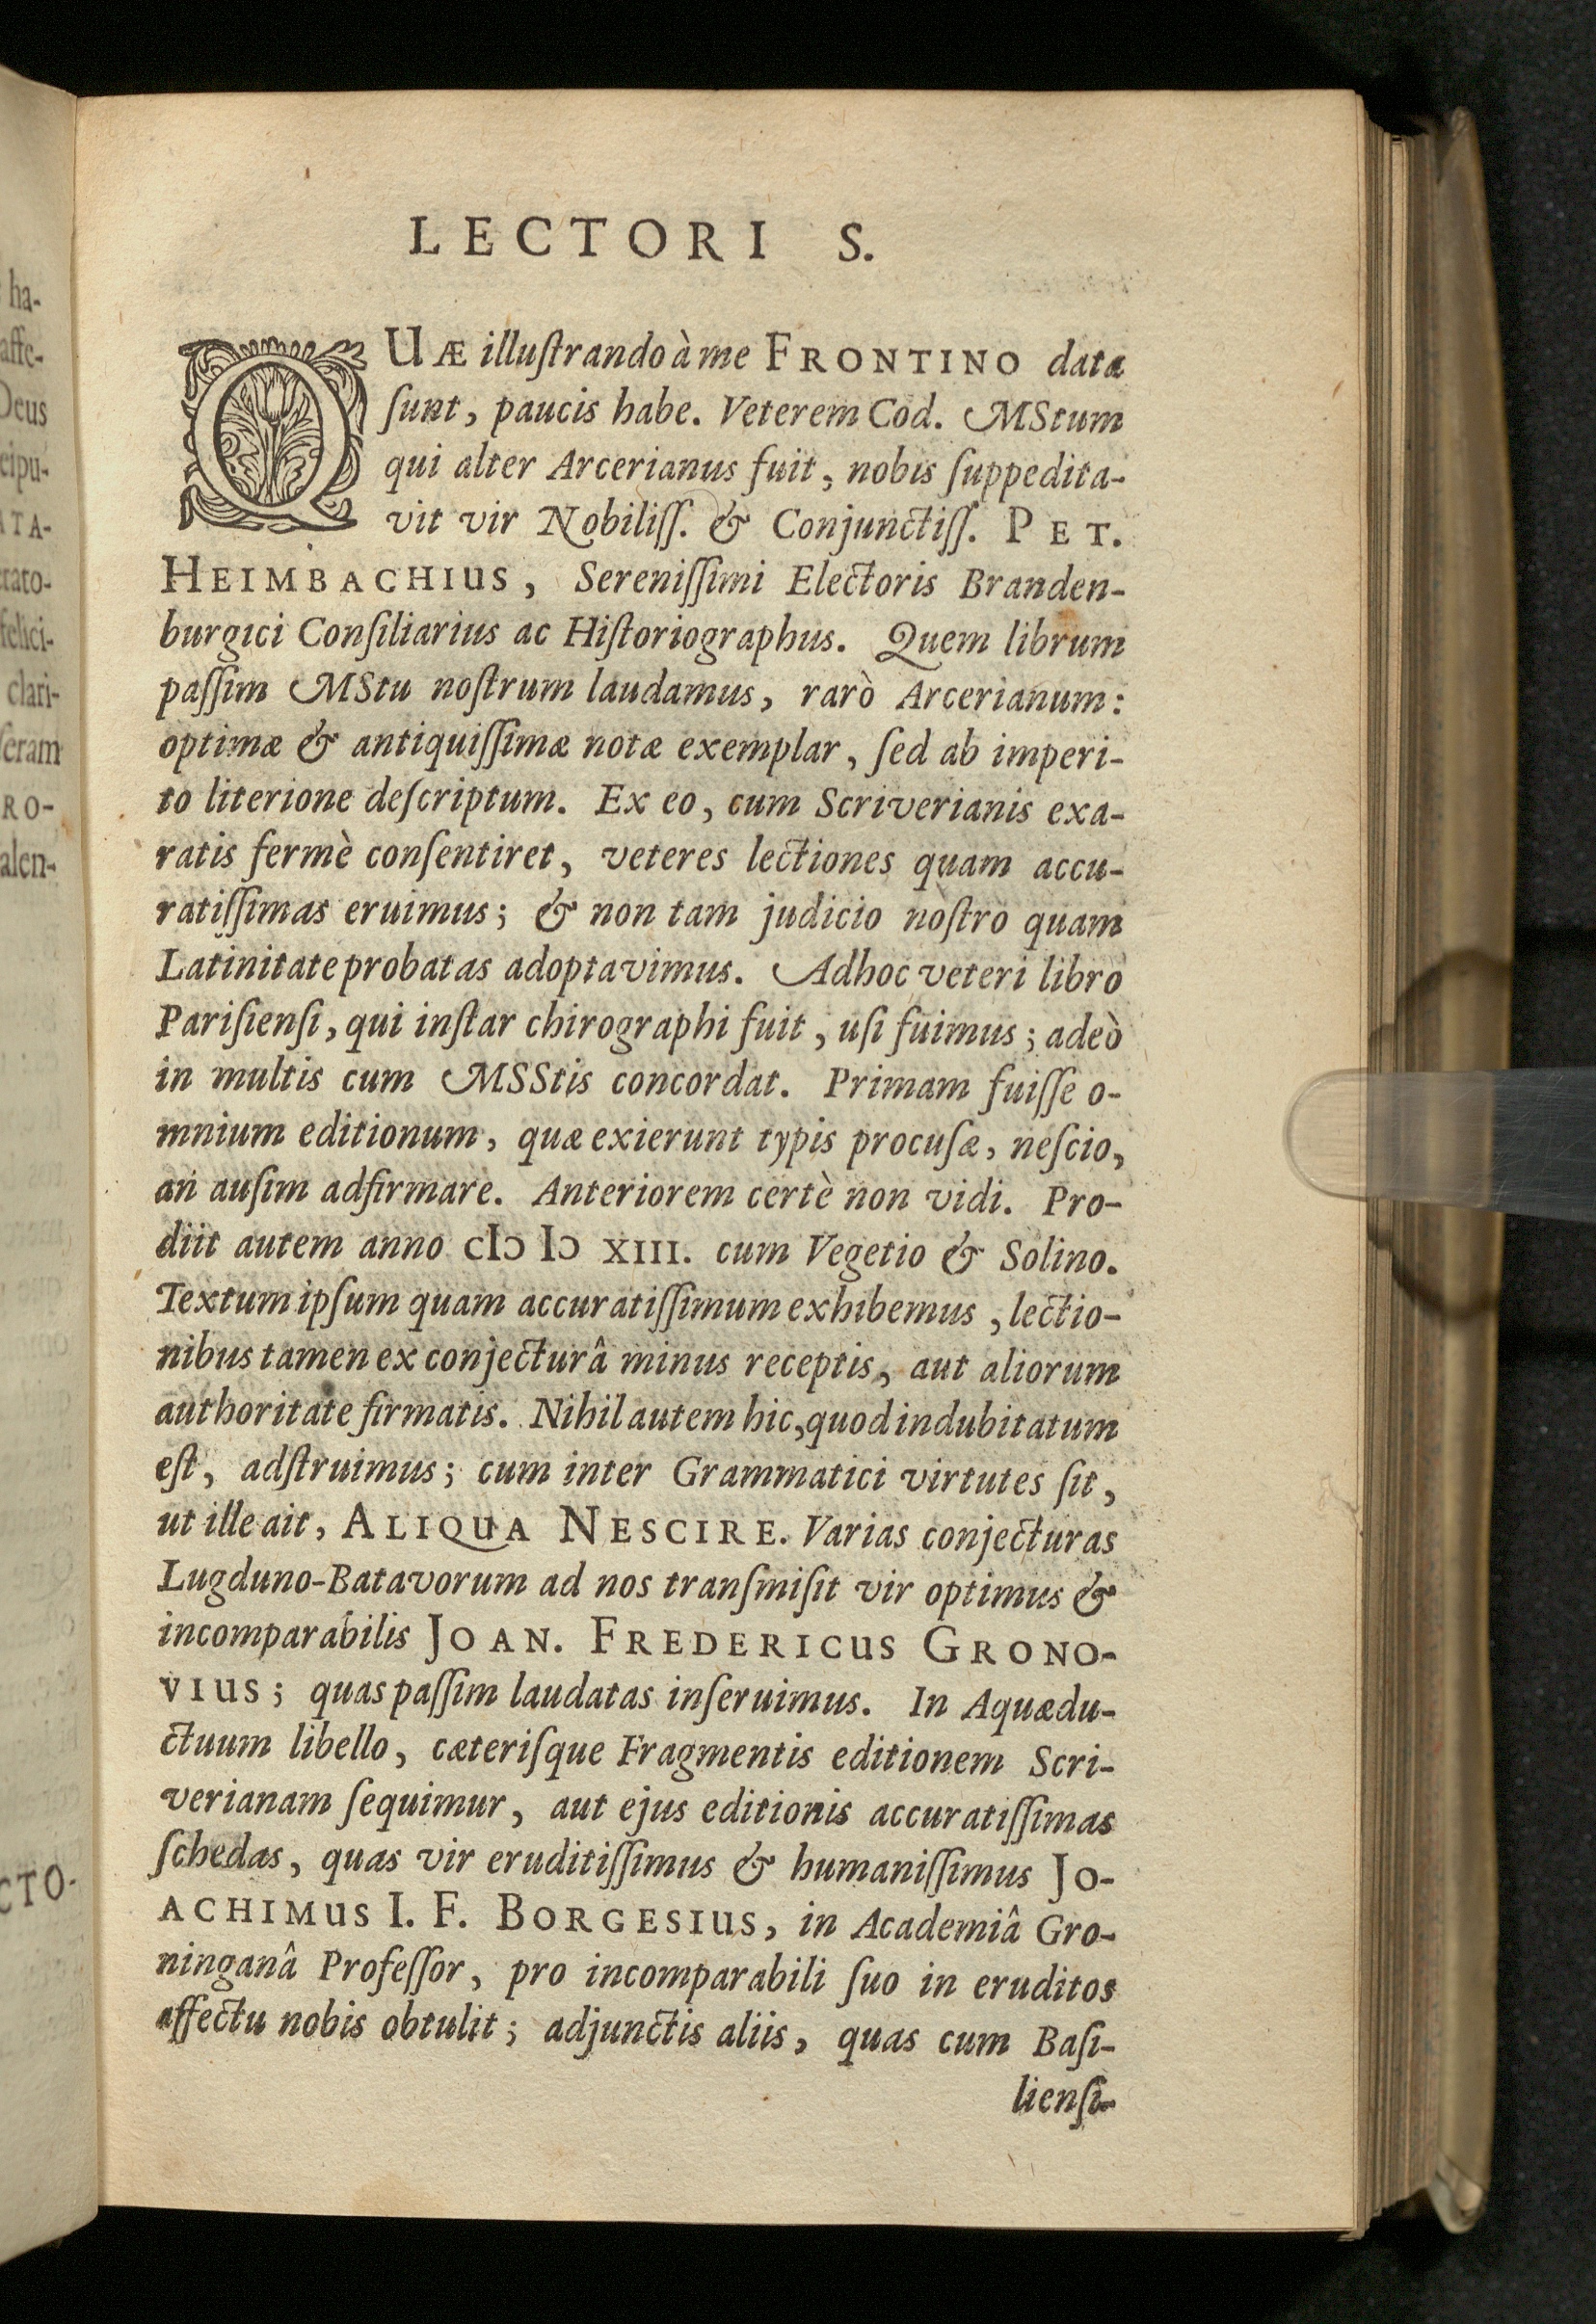 LECTORI S.
QUÆ illuſtrando à me FRONTINO data
ſunt, paucis habe. Veterem Cod. MStum
qui alter Arcerianus fuit, nobis ſuppedita-
vit vir Nobiliſſ. & Conjunctiſſ. PET.
HEIMBACHIUS, Sereniſſimi Electoris Branden-
burgici Conſiliarius ac Hiſtoriographus. Quem librum
paſſim MStu noſtrum laudamus, rarò Arcerianum:
optimæ & antiquiſſimæ notæ exemplar, ſed ab imperi-
to literione deſcriptum. Ex eo, cum Scriverianis exa-
ratis fermè conſentiret, veteres lectiones quam accu-
ratiſſimas eruimus; & non tam judicio noſtro quam
Latinitate probatas adoptavimus. Adhoc veteri libro
Pariſienſi, qui inſtar chirographi fuit, uſi fuimus; adeò
in multis cum MSStis concordat. Primam fuiſſe o-
mnium editionum, quæ exierunt typis procuſæ, neſcio,
an auſim adfirmare. Anteriorem certè non vidi. Pro-
diit autem anno cIɔ Iɔ XIII. cum Vegetio & Solino.
Textum ipſum quam accuratiſſimum exhibemus, lectio-
nibus tamen ex conjecturâ minus receptis, aut aliorum
authoritate firmatis. Nihil autem hic, quod indubitatum
eſt, adſtruimus; cum inter Grammatici virtutes ſit,
ut ille ait, ALIQUA NESCIRE. Varias conjecturas
Lugduno-Batavorum ad nos tranſmiſit vir optimus &
incomparabilis JOAN. FREDERICUS GRONO-
VIUS; quas paſſim laudatas inſeruimus. In Aquædu-
ctuum libello, cæteriſque Fragmentis editionem Scri-
verianam ſequimur, aut ejus editionis accuratiſſimas
ſchedas, quas vir eruditiſſimus & humaniſſimus JO-
ACHIMUS I. F. BORGESIUS, in Academiâ Gro-
ninganâ Profeſſor, pro incomparabili ſuo in eruditos
affectu nobis obtulit; adjunctis aliis, quas cum Baſi-
lienſi-